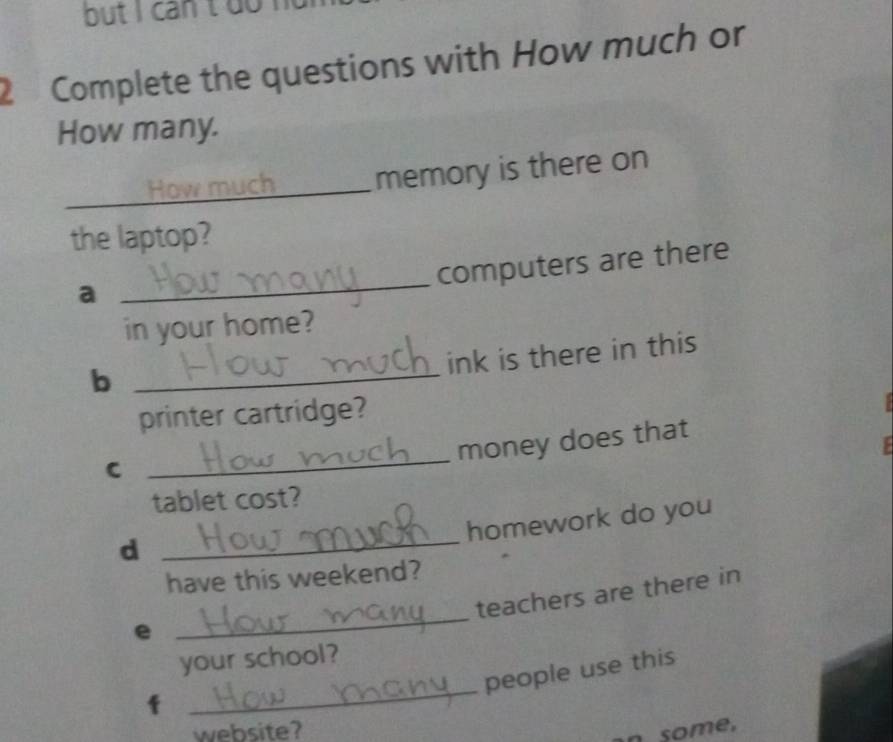 but I can't do
2 Complete the questions with How much or
How many.
How much memory is there on
the laptop?
a How many computers are there
in your home?
b How much ink is there in this
printer cartridge?
c How much money does that
tablet cost?
d How much homework do you
have this weekend?
e How many teachers are there in
your school?
f How many people use this
website?
some.